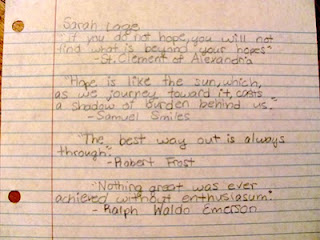 Sarah Lage
"if you do not hope, you will not
find what is beyond your hopes"
-St. Clement of Alexandria
"Hope is like the sun, which,
as we journey toward it, casts
a shadow of burden behind us."
-Samuel Smiles
"The best way out is always
through."
-Robert Frost
"Nothing great was ever
achieved without enthusiasum."
-Ralph Waldo Emerson